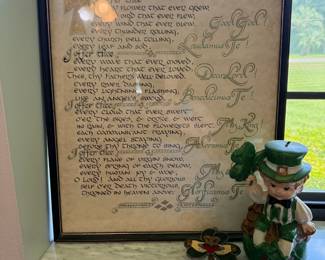 I offer Thee
Every flower that ever grew
Every bird that ever flew
Every wind that ever blew
Good God!
Every thunder rolling
Every church bell tolling
Every leaf and sod
Laudamus Te!
I offer Thee
Every wave that ever moved
Every heart that ever loved
Dear Lord
Thee, thy Father's Well-Beloved
Every river dashing
Every lightning flashing
Like an angel's sword
Benedicimus Te!
I offer Thee
Every cloud that ever swept
O'er the skies, & broke & wept
In rain, & with the flowerets slept
My King!
Each communicant praying
Every angel staying
Before thy throne to sing
Adoramus Te!
I offer Thee
Every flake of virgin snow,
Every spring of earth below,
Every human joy & woe,
My Love
O Lord! And all thy glorious
Self o'er death victorious,
Throned in heaven above
Glorificamus Te!